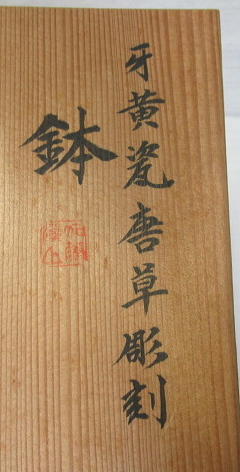 牙黄瓷唐草彫刻
鉢